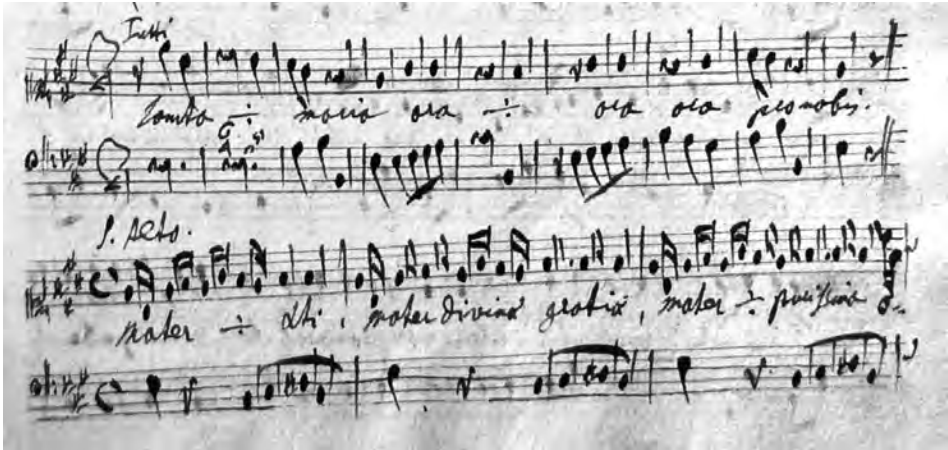 Tutti
Sancta ÷ Maria ora ÷ ora ora pro nobis.
6 5
S. Alto.
Mater ÷ Xti, mater divinæ gratiæ, mater ÷ purissima